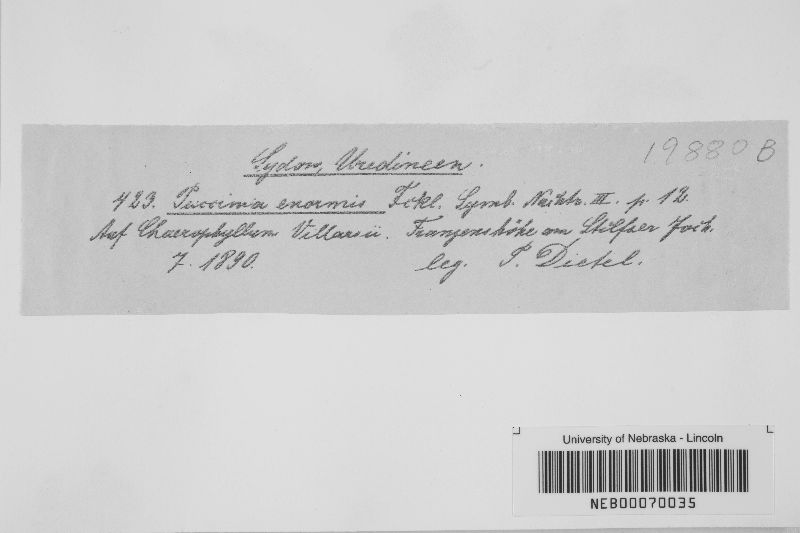 Sydow, Uredineen.
19880 B
423. Puccinia enormis Fckl. Symb. Nachtr. III. p. 12.
Auf Chaerophyllum Villarsii. Franzenshöhe am Stilfser Joch.
7. 1890. leg. P. Dietel.
University of Nebraska - Lincoln
NEB00070035